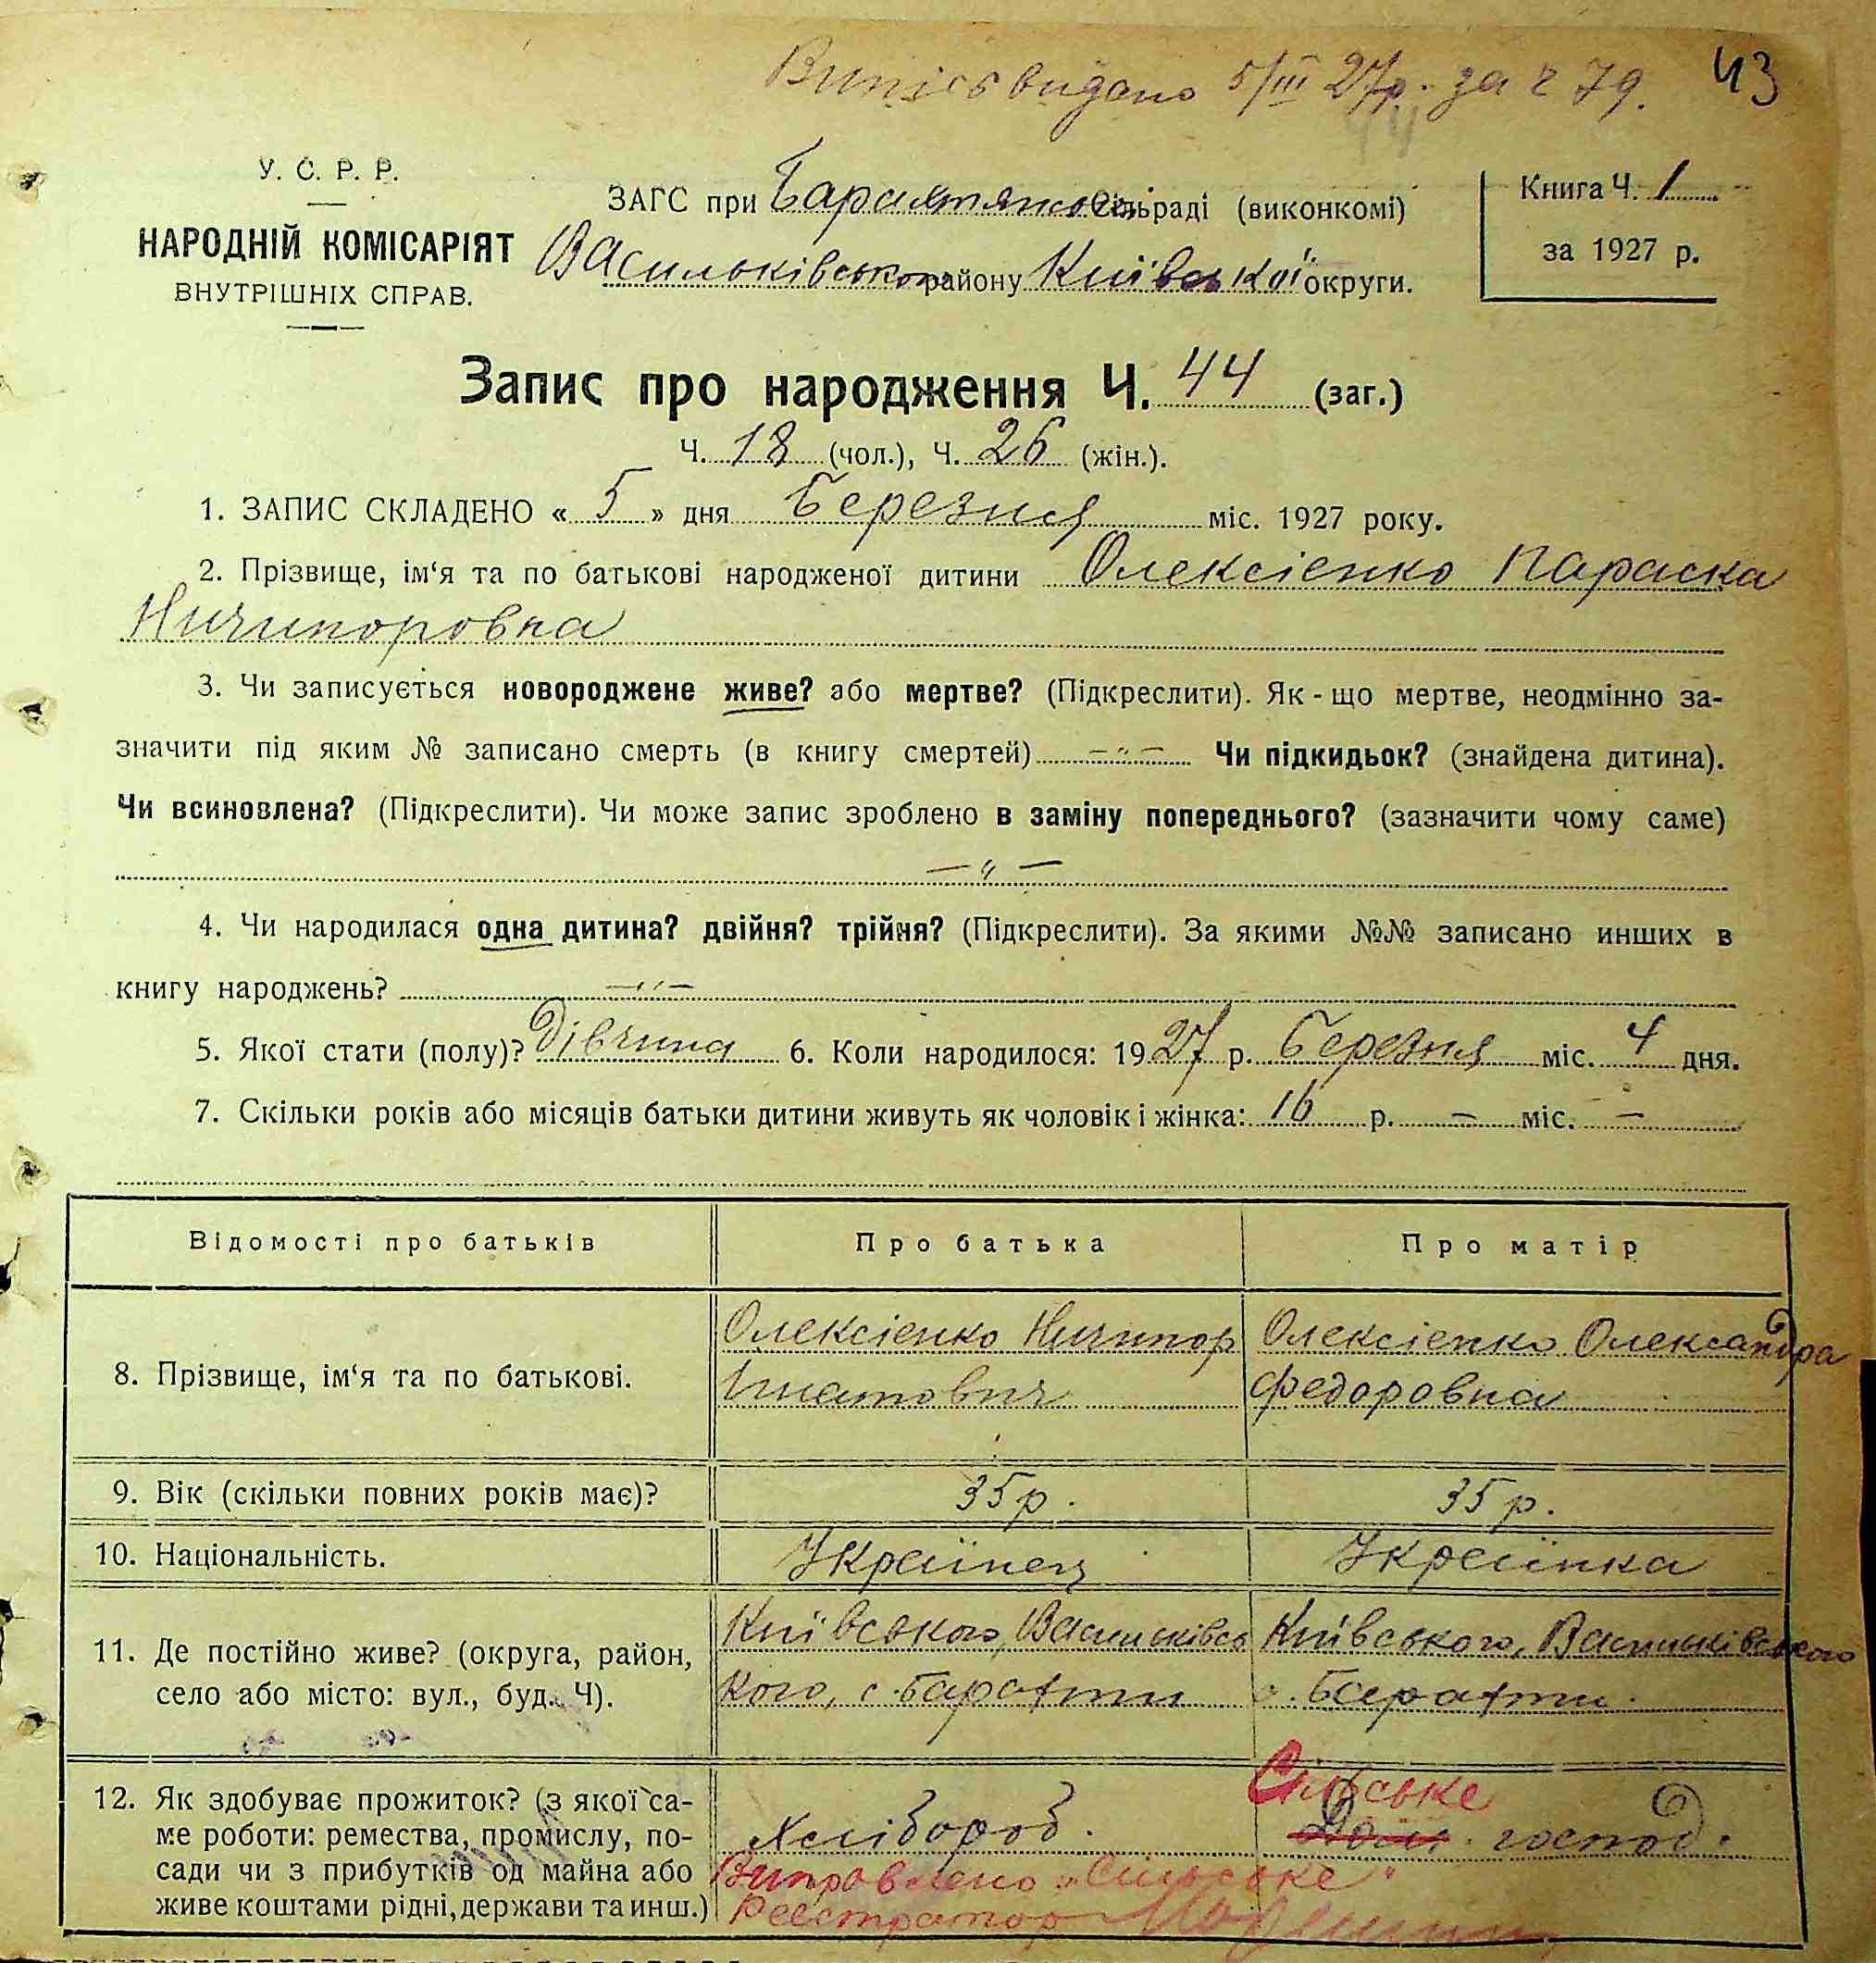 Випись видано 5/III 27р. за ч 79. 43
У. С. Р. Р.
НАРОДНІЙ КОМІСАРІЯТ
ВНУТРІШНІХ СПРАВ.
ЗАГС при Барахтянськ сільраді (виконкомі)
Васильківського району Київської округи.
Книга Ч. 1
за 1927 р.
Запис про народження Ч. 44 (заг.)
Ч. 18 (чол.), Ч. 26 (жін.).
1. ЗАПИС СКЛАДЕНО « 5 » дня Березня міс. 1927 року.
2. Прізвище, ім‘я та по батькові народженої дитини Олексієнко Параска
Ничипоровна
3. Чи записується новороджене живе? або мертве? (Підкреслити). Як - що мертве, неодмінно за-
значити під яким № записано смерть (в книгу смертей) —"— Чи підкидьок? (знайдена дитина).
Чи всиновлена? (Підкреслити). Чи може запис зроблено в заміну попереднього? (зазначити чому саме)
— " —
4. Чи народилася одна дитина? двійня? трійня? (Підкреслити). За якими №№ записано инших в
книгу народжень? — " —
5. Якої стати (полу)? Дівчина 6. Коли народилося: 1927 р. Березня міс. 4 дня.
7. Скільки років або місяців батьки дитини живуть як чоловік і жінка: 16 р. — міс. —
Відомості про батьків Про батька Про матір
8. Прізвище, ім‘я та по батькові.
Олексієнко Ничипор
Ігнатович
Олексієнко Олександра
Федоровна
9. Вік (скільки повних років має)? 35 р. 35 р.
10. Національність. Українец Українка
11. Де постійно живе? (округа, район,
село або місто: вул., буд. Ч).
Київського, Васильківсь
кого, с. Барахти
Київського, Васильківського
с. Барахти.
12. Як здобуває прожиток? (з якої са-
ме роботи: ремества, промислу, по-
сади чи з прибутків од майна або
живе коштами рідні, держави та инш.)
Хлібороб.
Сільське
Дом. господ.
Виправлено „Сільське"
Реєстратор